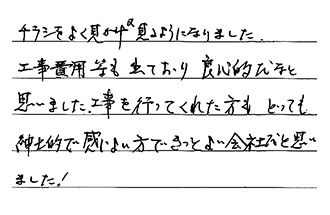 チラシをよく見かけ見るようになりました。
工事費用等も出ており良心的だなと
思いました。工事を行ってくれた方もとっても
紳士的で感じよい方できっとよい会社だと思い
ました!